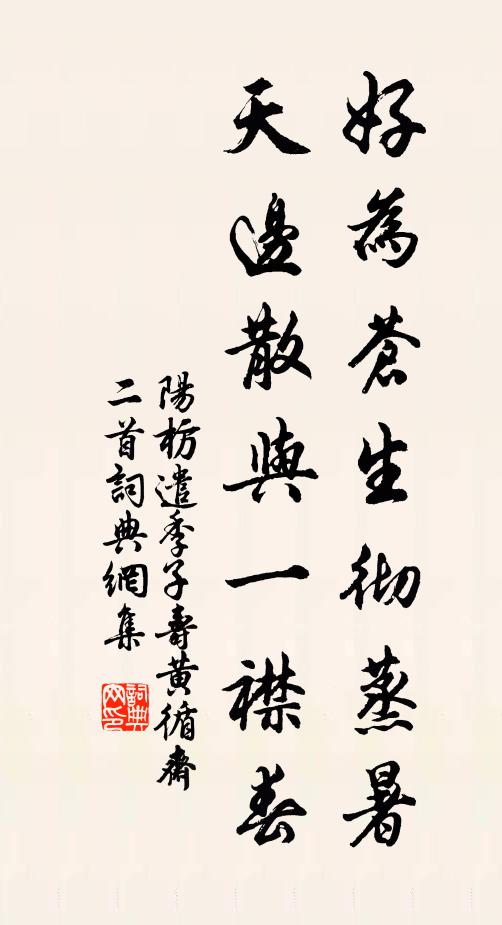 好為蒼生徹蒸暑
天邊散與一襟春
陽枋遣季子壽黃循齋
二首詞典網集
詞典网印